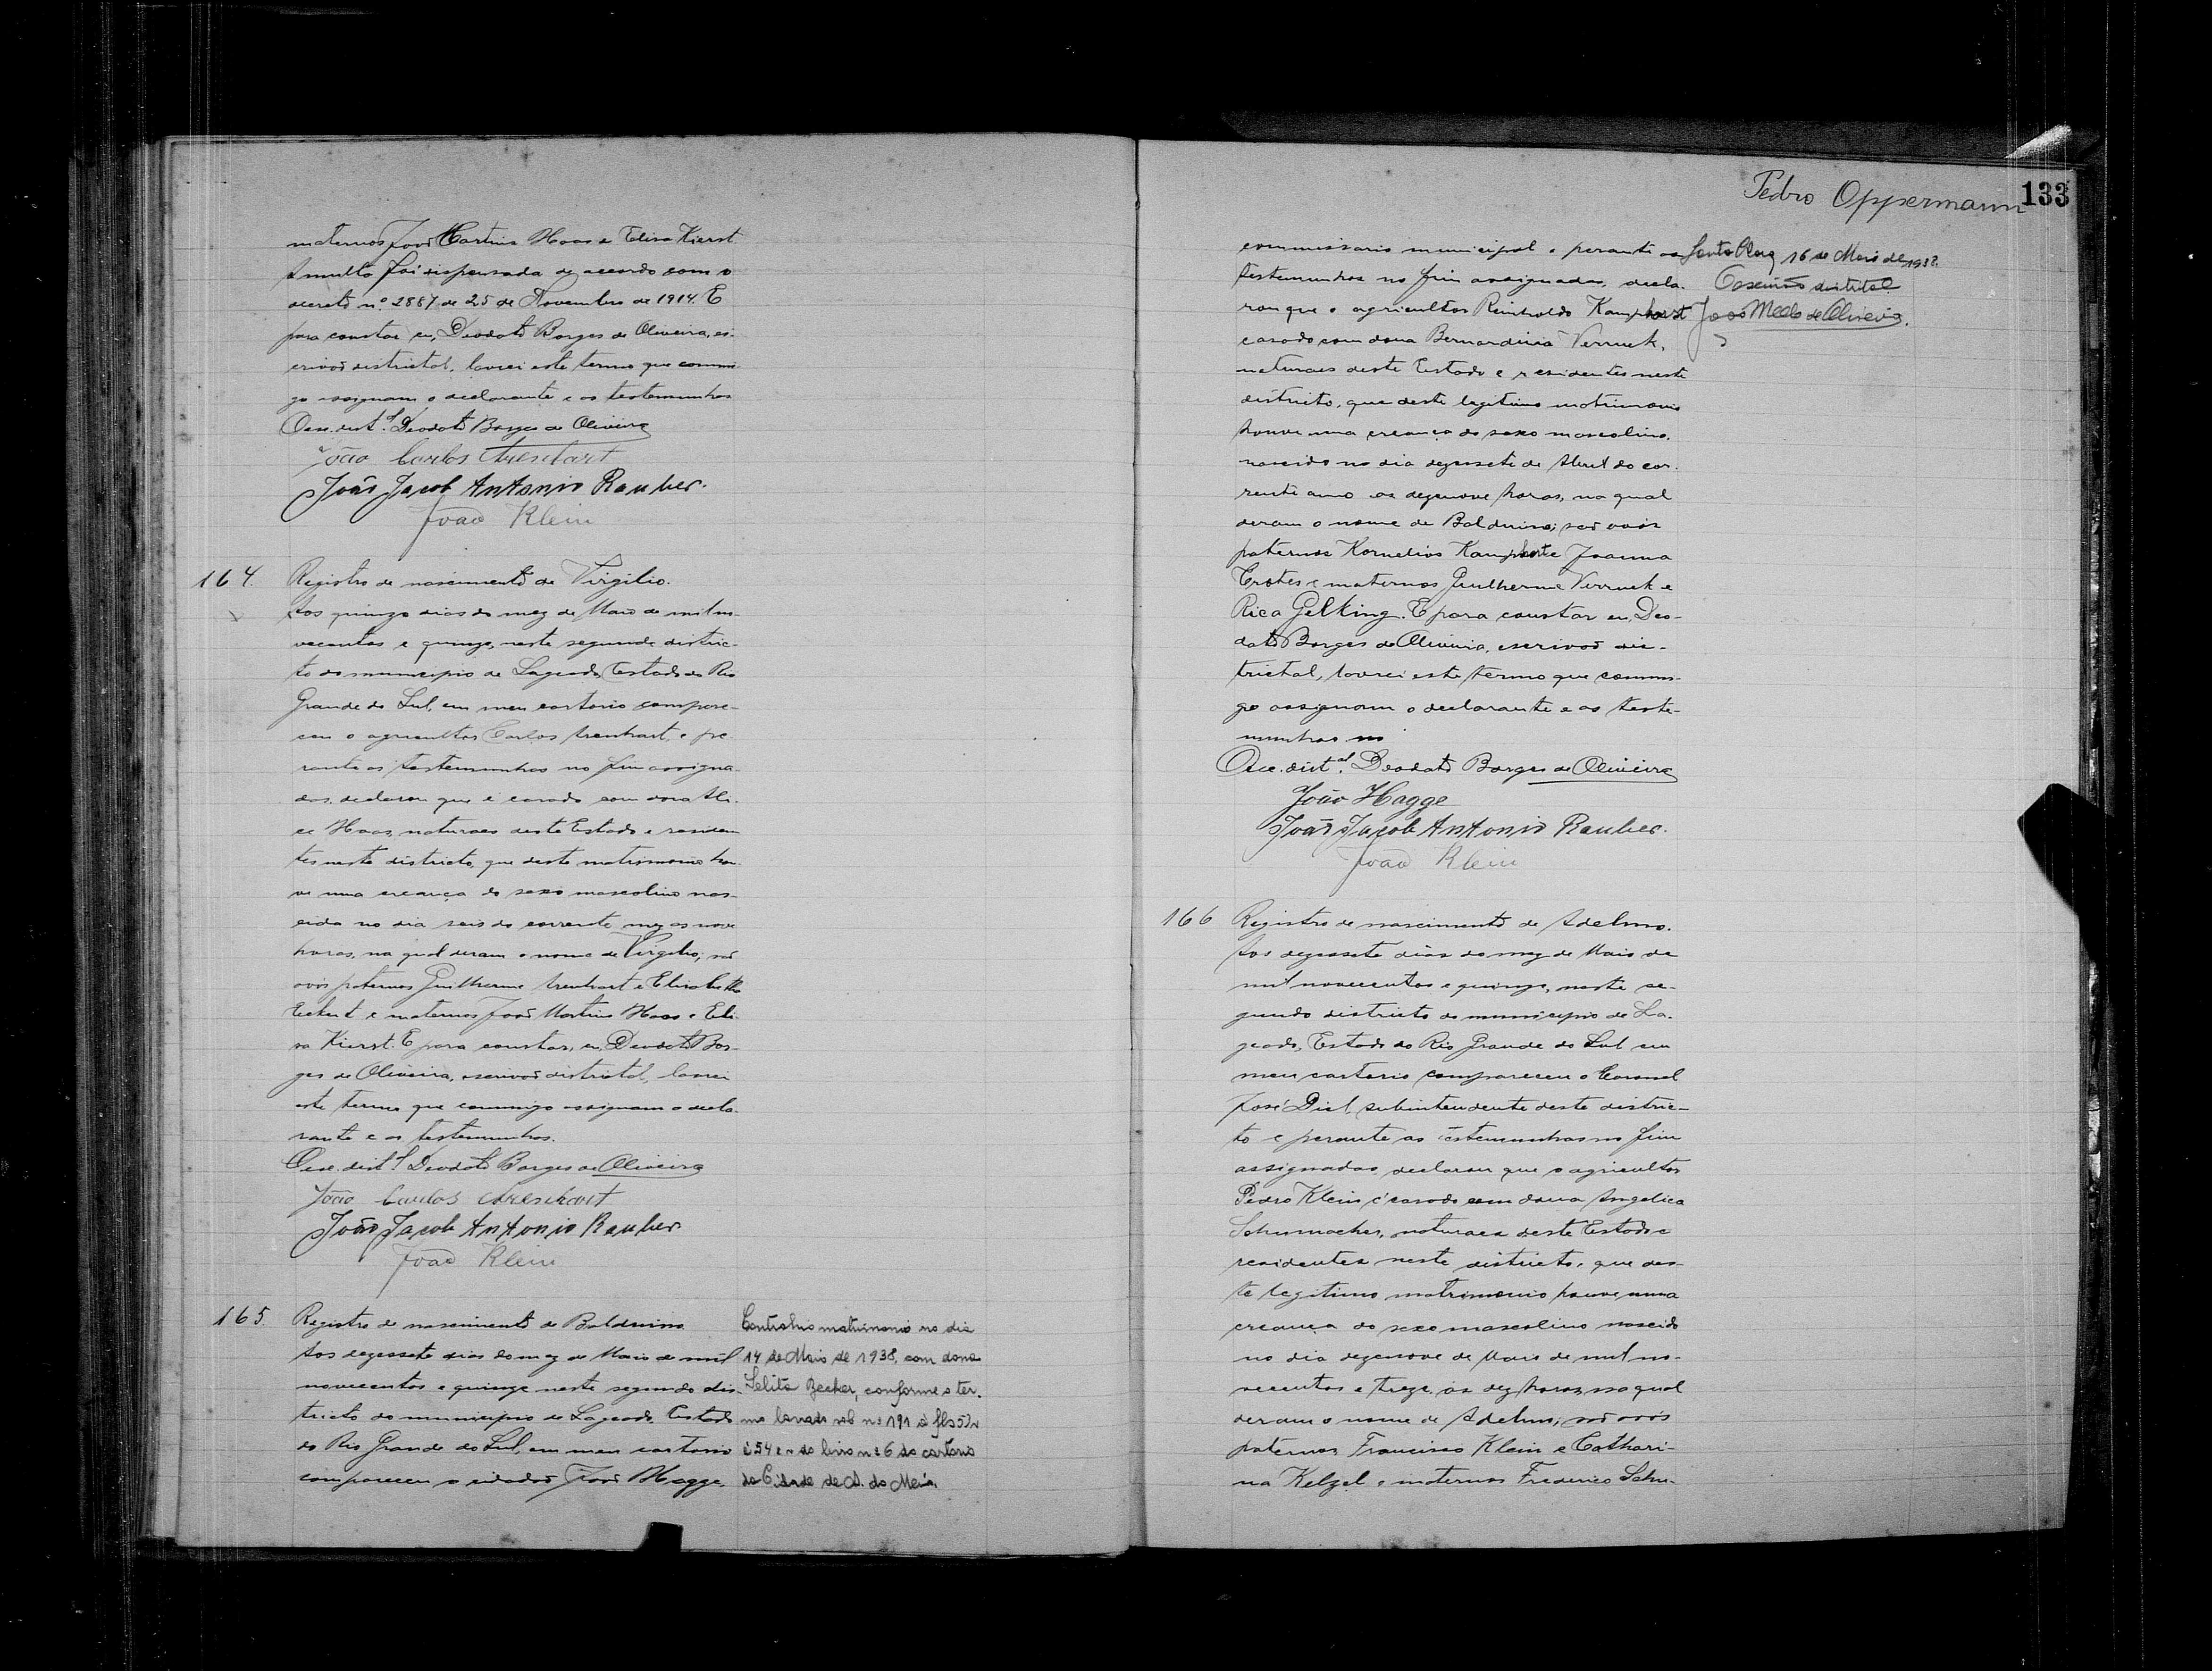 maternos João Martins Haas e Elisa Kierst
A multa foi dispensada de accordo com o
decreto nº 2887 de 25 de Novembro de 1914. E
para constar eu, Deodato Borges de Oliveira, es-
crivão districtal, lavrei este termo que commi-
go assignam o declarante e as testemunhas
Oesc. distal. Deodato Borges de Oliveira
João Carlos
João Jacob Antonio Rauber.
João Klein
164. Registro de nascimento de Virgilio.
Aos quinze dias do mez de Maio de mil no-
vecentos e quinze, neste segundo distric-
to do municipio de Lageado, Estado do Rio
Grande do Sul, em meu cartorio compare-
ceu o agricultor Carlos Arenhart, e pe-
rante as testemunhas no fim assigna-
das, declarou que é casado com dona Ali-
ce Haas, naturaes deste Estado e residen-
tes neste districto, que deste matrimonio hou-
ve uma creança do sexo masculino nas-
cida no dia seis do corrente mez as nove
horas, na qual deram o nome de Virgilio; são
avós paternos Guilherme Arenhart e Elisabetha
Eckert e maternos João Martins Haas e Eli-
sa Kierst. E para constar, eu, Deodato Bor-
ges de Oliveira, escrivão districtal, lavrei
este termo que commigo assignam o decla-
rante e as testemunhas.
Oesc. distal Deodato Borges de Oliveira
João Carlos Arenhart
João Jacob Antonio Rauber
João Klein
165. Registro de nascimento de Balduino
Aos dezessete dias do mez de Maio de mil
novecentos e quinze neste segundo dis-
tricto do municipio de Lageado, Estado
do Rio Grande do Sul, em meu cartorio
compareceu o cidadão João Hagge,
Contrahio matrimonio no dia
14 de Maio de 1938, com dona
Selita Becker, conforme o ter-
mo lavrado sob nº 191 à fls 53v
é 54 e v do livro nº 6 do cartorio
da Cidade de A. do Meio.
Pedro Oppermann 133
commissario municipal e perante as
testemunhas no fim assignadas, decla-
rou que o agricultor Reinholdo Kamphorst
casado com dona Bernardina Verruck,
naturaes deste Estado e residentes neste
districto, que deste legitimo matrimonio
houve uma creança do sexo masculino,
nascida no dia dezessete de Abril do cor-
rente anno as dezenove horas, na qual
deram o nome de Balduino; são avós
paternos Kornelios Kamphorst e Joanna
Crotes e maternos Guilherme Verruck e
Rica Gelking. E para constar eu, Deo-
dato Borges de Oliveira, escrivão dis-
trictal, lavrei este termo que commi-
go assignam o declarante e as teste-
munhas.
Oesc. distal. Deodato Borges de Oliveira
João Hagge
João Jacob Antonio Rauber.
João Klein
Santa Clara, 16 de Maio de 1938.
O escrivão distrital
João Mello de Oliveira.
166 Registro de nascimento de Adelmo.
Aos dezessete dias do mez de Maio de
mil novecentos e quinze, neste se-
gundo districto do municipio de La-
geado, Estado do Rio Grande do Sul em
meu cartorio compareceu o Coronel
José Diel, subintendente deste distric-
to e perante as testemunhas no fim
assignadas, declarou que o agricultor
Pedro Klein é casado com dona Angelica
Schumacher, naturaes deste Estado e
residentes neste districto, que des-
te legitimo matrimonio houve uma
creança do sexo masculino nascido
no dia dezenove de Maio de mil no-
vecentos e treze, as dez horas, na qual
deram o nome de Adelmo; são avós
paternos Francisco Klein e Cathari-
na Kelzel e maternos Frederico Schu-